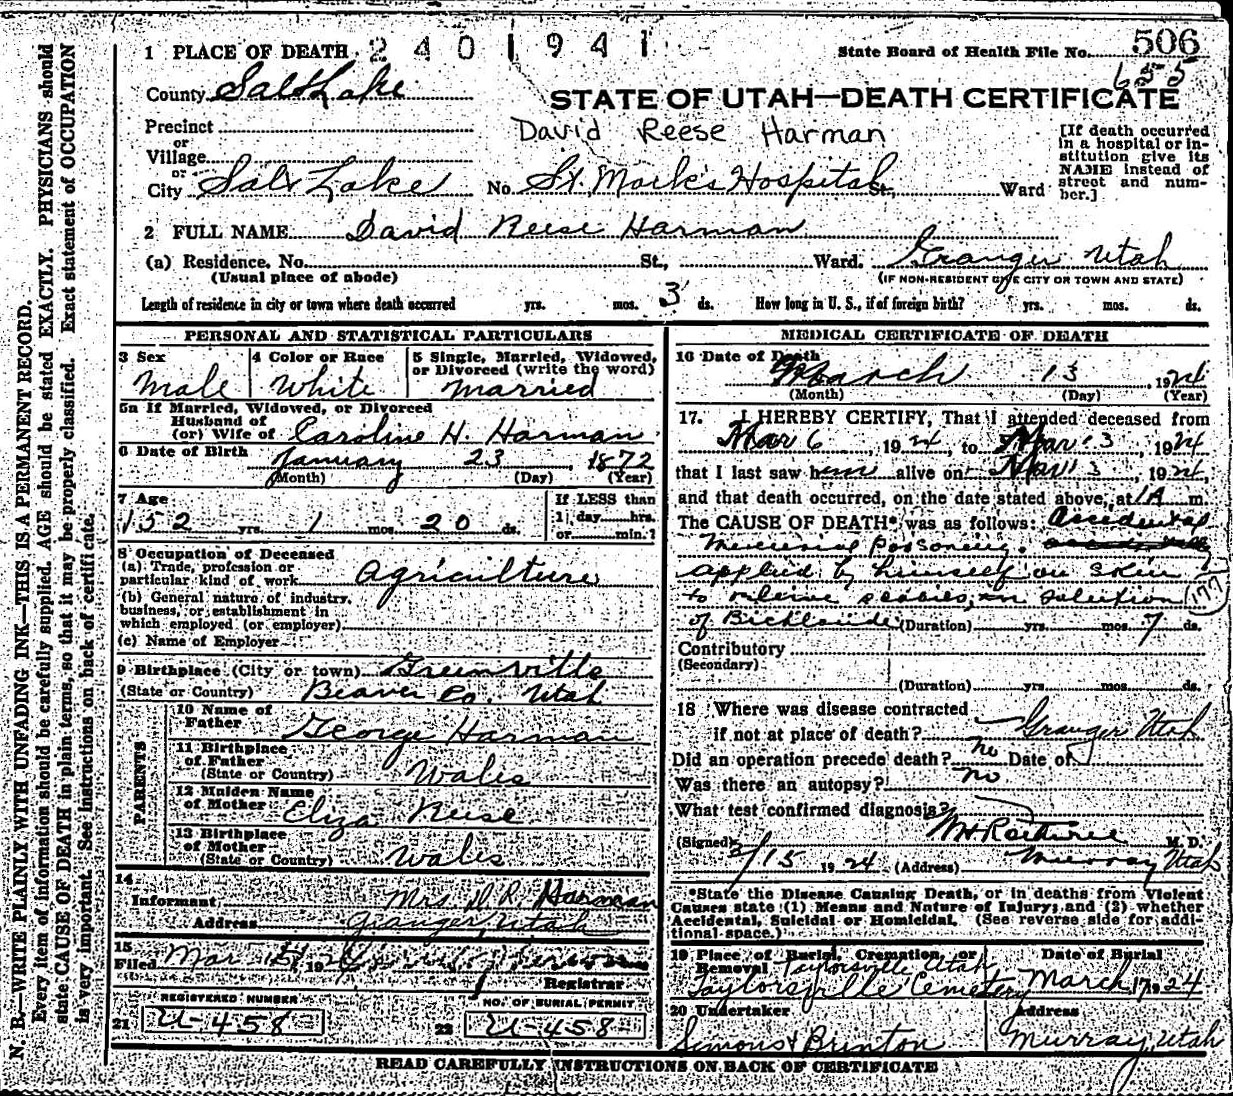 1 PLACE OF DEATH 2401941 State Board of Health File No. 506
655
County Salt Lake
STATE OF UTAH—DEATH CERTIFICATE
Precinct
David Reese Harman
or
Village
or
City Salt Lake No. St. Mark's Hospital St., Ward
[If death occurred
in a hospital or in-
stitution give its
NAME instead of
street and num-
ber.]
2 FULL NAME David Reese Harman
(a) Residence. No. St., Ward. Granger Utah
(Usual place of abode) (IF NON-RESIDENT GIVE CITY OR TOWN AND STATE)
Length of residence in city or town where death occurred yrs. mos. 3 ds. How long in U. S., if of foreign birth? yrs. mos. ds.
PERSONAL AND STATISTICAL PARTICULARS
3 Sex 4 Color or Race 5 Single, Married, Widowed,
or Divorced (write the word)
Male White Married
5a If Married, Widowed, or Divorced
Husband of
(or) Wife of Caroline H. Harman
6 Date of Birth January 23, 1872
(Month) (Day) (Year)
7 Age If LESS than
152 yrs. 1 mos. 20 ds. 1 day hrs.
or min.?
8 Occupation of Deceased
(a) Trade, profession or
particular kind of work Agriculture
(b) General nature of industry,
business, or establishment in
which employed (or employer)
(c) Name of Employer
9 Birthplace (City or town) Greenville
(State or Country) Beaver Co. Utah
PARENTS
10 Name of
Father George Harman
11 Birthplace
of Father
(State or Country) Wales
12 Maiden Name
of Mother Eliza Reese
13 Birthplace
of Mother
(State or Country) Wales
14
Informant Mrs. D. R. Harman
Address Granger, Utah
15
Filed Mar 15, 1924
Registrar
REGISTERED NUMBER NO. OF BURIAL PERMIT
21 U-458 22 U-458
MEDICAL CERTIFICATE OF DEATH
16 Date of Death
March 13, 1924
(Month) (Day) (Year)
17. I HEREBY CERTIFY, That I attended deceased from
Mar 6, 1924, to Mar 13, 1924
that I last saw him alive on Mar 13, 1924,
and that death occurred, on the date stated above, at 1 A m.
The CAUSE OF DEATH* was as follows: Accidental
Mercurial Poisoning.
applied by himself on skin
to relieve scabies, in solution 177
of Bichloride (Duration) yrs. mos. 7 ds.
Contributory
(Secondary)
(Duration) yrs. mos. ds.
18 Where was disease contracted
if not at place of death? Granger Utah
Did an operation precede death? no Date of
Was there an autopsy? no
What test confirmed diagnosis?
(Signed) M. D.
3/15 1924 (Address) Murray Utah
*State the Disease Causing Death, or in deaths from Violent
Causes state (1) Means and Nature of Injury; and (2) whether
Accidental, Suicidal or Homicidal. (See reverse side for addi-
tional space.)
19 Place of Burial, Cremation, or Date of Burial
Removal Taylorsville, Utah
Taylorsville Cemetery March 17 1924
20 Undertaker Address
Simons & Brinton Murray, Utah
READ CAREFULLY INSTRUCTIONS ON BACK OF CERTIFICATE
N. B.—WRITE PLAINLY WITH UNFADING INK—THIS IS A PERMANENT RECORD.
Every item of information should be carefully supplied. AGE should be stated EXACTLY. PHYSICIANS should
state CAUSE OF DEATH in plain terms, so that it may be properly classified. Exact statement of OCCUPATION
is very important. See instructions on back of certificate.